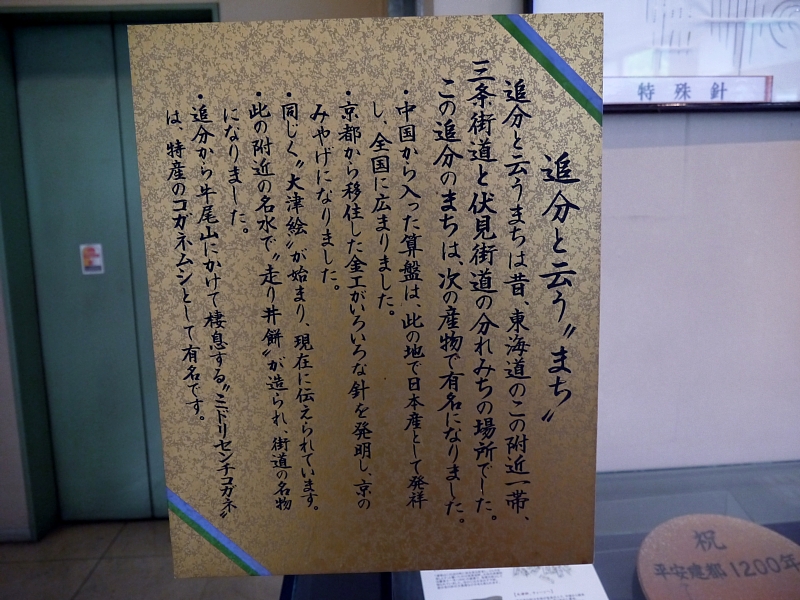 追分と云う〝まち〟
追分と云うまちは昔、東海道のこの附近一帯、
三条街道と伏見街道の分れみちの場所でした。
この追分のまちは、次の産物で有名になりました。
・中国から入った算盤は、此の地で日本産として発祥
し、全国に広まりました。
・京都から移住した金工がいろいろな針を発明し、京の
みやげになりました。
・同じく〝大津絵〟が始まり、現在に伝えられています。
・此の附近の名水で〝走り井餅〟が造られ、街道の名物
になりました。
・追分から牛尾山にかけて棲息する〝ミドリセンチコガネ〟
は、特産のコガネムシとして有名です。
特殊針
祝
平安建都1200年